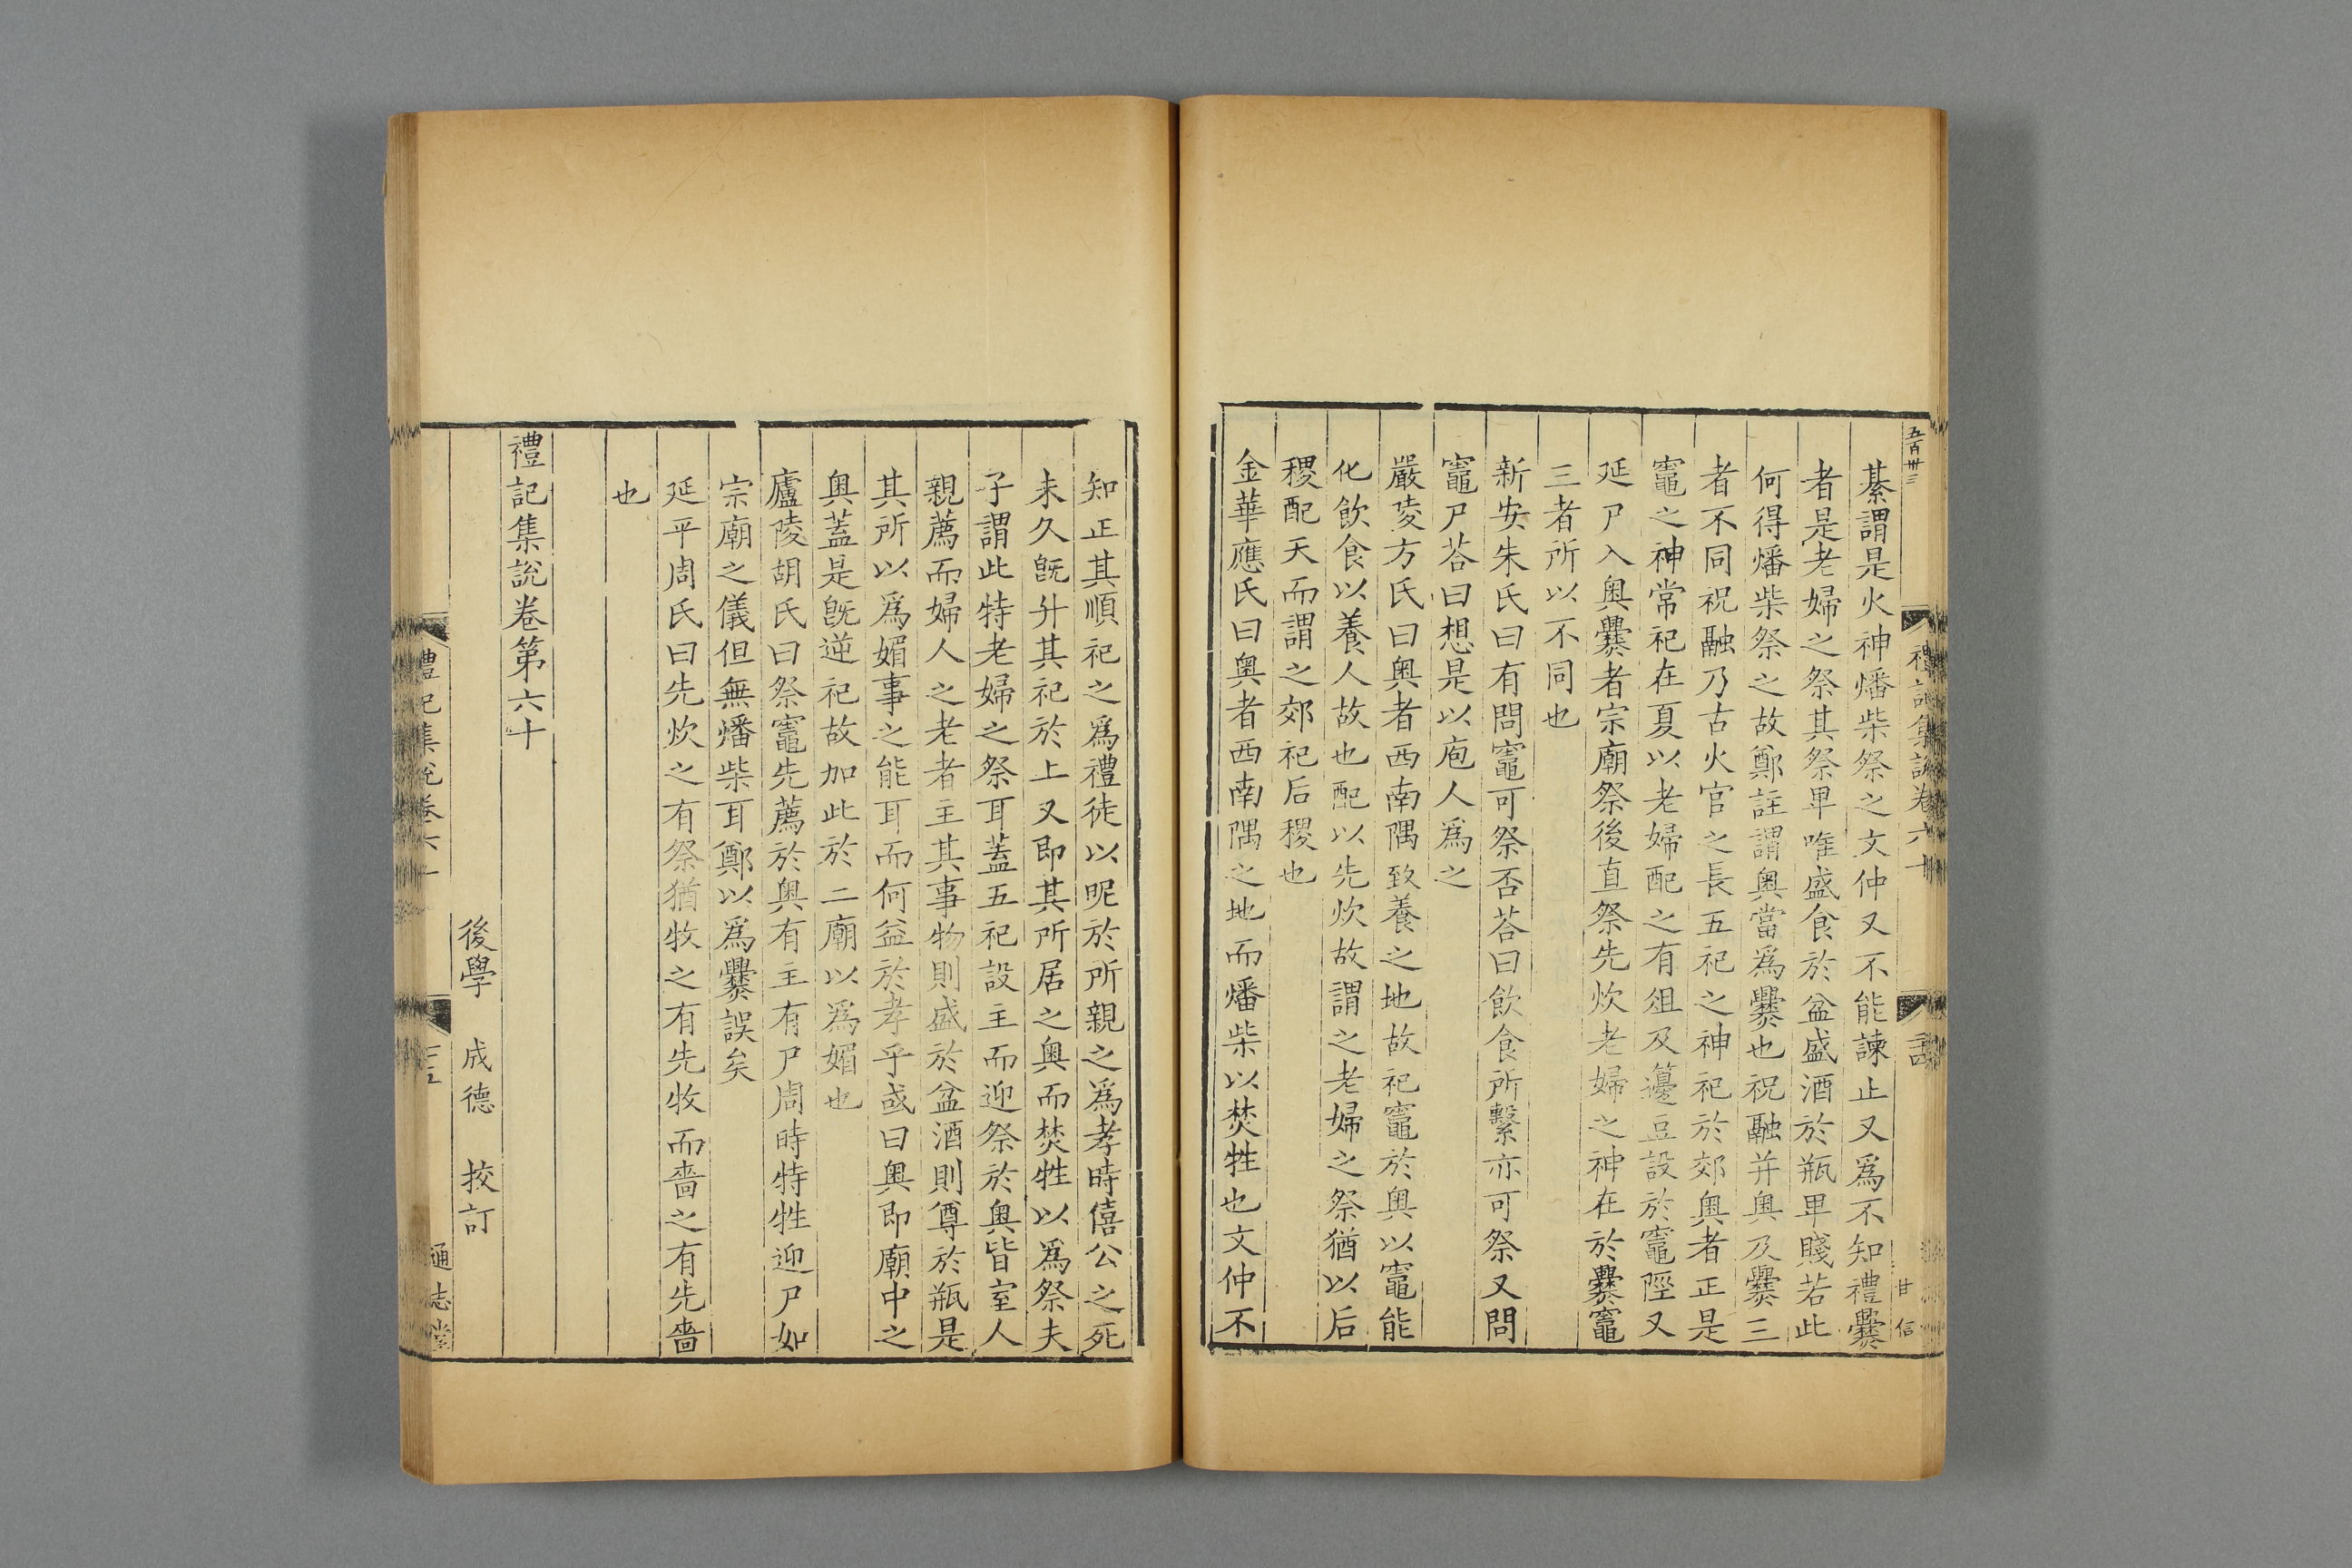 五百卅三
禮記集說卷六十
甘信
綦謂是火神燔柴祭之文仲又不能諫止又爲不知禮爨
者是老婦之祭其祭卑唯盛食於盆盛酒於瓶卑賤若此
何得燔柴祭之故鄭註謂奧當爲爨也祝融并奧及爨三
者不同祝融乃古火官之長五祀之神祀於郊奧者正是
竈之神常祀在夏以老婦配之有俎及籩豆設於竈陘又
延尸入奧爨者宗廟祭後直祭先炊老婦之神在於爨竈
三者所以不同也
新安朱氏曰有問竈可祭否荅曰飲食所繫亦可祭又問
竈尸荅曰想是以庖人爲之
嚴陵方氏曰奧者西南隅致養之地故祀竈於奧以竈能
化飲食以養人故也配以先炊故謂之老婦之祭猶以后
稷配天而謂之郊祀后稷也
金華應氏曰奧者西南隅之地而燔柴以焚牲也文仲不
知正其順祀之爲禮徒以昵於所親之爲孝時僖公之死
未久旣升其祀於上又即其所居之奧而焚牲以爲祭夫
子謂此特老婦之祭耳蓋五祀設主而迎祭於奧皆室人
親薦而婦人之老者主其事物則盛於盆酒則尊於瓶是
其所以爲媚事之能耳而何益於孝乎或曰奧即廟中之
奧蓋是旣逆祀故加此於二廟以爲媚也
廬陵胡氏曰祭竈先薦於奧有主有尸周時特牲迎尸如
宗廟之儀但無燔柴耳鄭以爲爨誤矣
延平周氏曰先炊之有祭猶牧之有先牧而嗇之有先嗇
也
禮記集說卷第六十
後學 成德 挍訂
禮記集說卷六十
通志堂